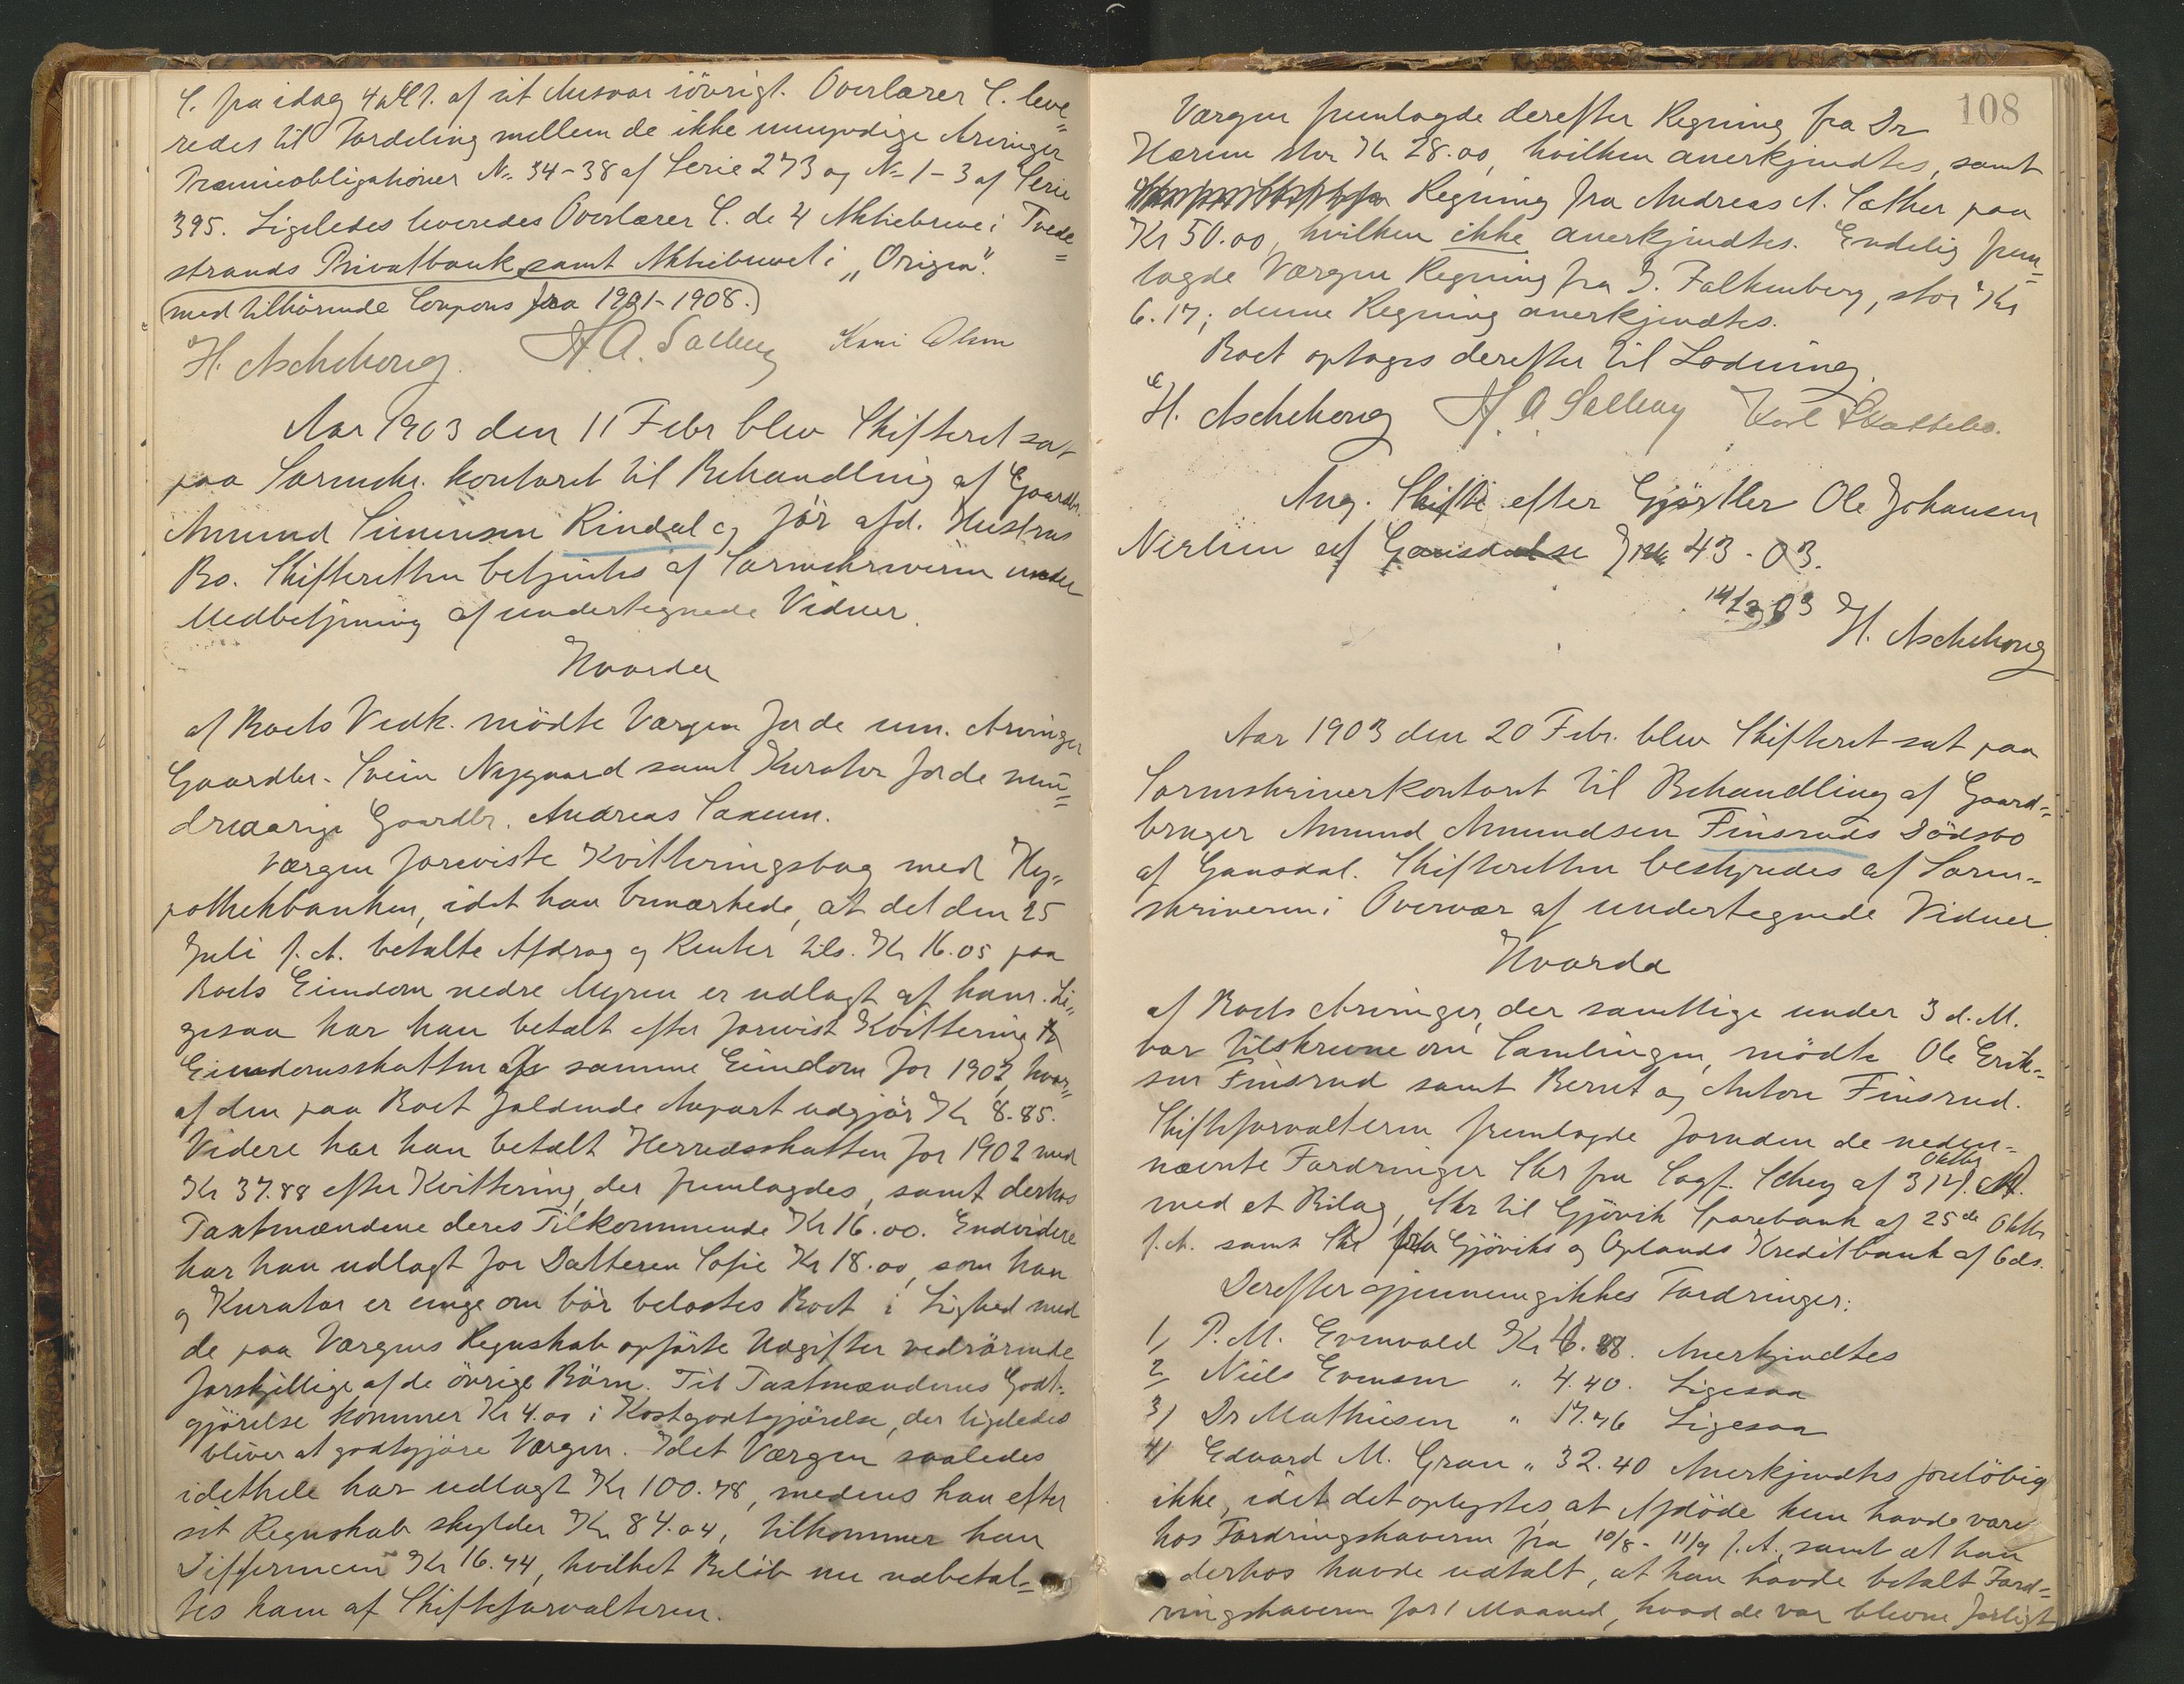 S. fra idag 4 af sit Ansvar iövrigt. Overlærer S. leve=
redes til Fordeling mellem de ikke umyndige Arvinger
Præmieobligationer No 34-38 af Serie 273 og No 1-3 af Serie
395. Ligeledes leveredes Overlærer S. de 4 Aktiebreve i Tvede=
strands Privatbank samt Aktiebrevet i „Origia".
(med tilhörende Coupons fra 1901-1908.)
H. Aschehoug. H A. Kari
Aar 1903 den 11 Febr blev Skifteret sat
paa Sorenskr. kontoret til Behandling af Gaardbr.
Amund Simensen Rindal og för afd. Hustrus
Bo. Skifteretten betjentes af Sorenskriveren under
Medbetjening af undertegnede Vidner.
Hvorda
af Boets Vedk. mödte Værgen for de um. Arvinger
Gaardbr. Svein Nygaard samt Kurator for de min=
dreaarige Gaardbr. Andreas Saxum.
Værgen foreviste Kvitteringsbog med Hy=
pothekbanken, idet han bemærkede, at det den 25
Juli f. A. betalte Afdrag og Renter tils. Kr 16.05 paa
Boets Eiendom nedre Myren er udlagt af ham. Li=
gesaa har han betalt efter forevist Kvittering
Eiendomsskatten af samme Eiendom for 1902, hvor=
af den paa Boet faldende Anpart udgjör Kr 8.85.
Videre har han betalt Herredsskatten for 1902 med
Kr 37.88 efter Kvittering, der fremlagdes, samt derhos
Taxtmændene deres Tilkommende Kr 16.00. Endvidere
har han udlagt for Datteren Sofie Kr 18.00, som han
og Kurator er enige om bör belastes Boet i Lighed med
de paa Værgens Regnskab opförte Udgifter vedrörende
forskjellige af de övrige Börn. Til Taxtmændenes Godt=
gjörelse kommer Kr 4.00 i Kostgodtgjörelse, der ligeledes
bliver at godtgjöre Værgen. Idet Værgen saaledes
idethele har udlagt Kr 100.78, medens han efter
sit Regnskab skylder Kr 84.04, tilkommer han
Differencen Kr 16.74, hvilket Belöb nu udbetal=
tes ham af Skifteforvalteren.
108
Værgen fremlagde derefter Regning fra Dr
stor Kr 28.00, hvilken anerkjendtes, samt
Regning fra Andreas A. Sæther paa
Kr 50.00, hvilken ikke anerkjendtes. Endelig frem=
lagde Værgen Regning fra J. Falkenberg, stor Kr
6.17; denne Regning anerkjendtes.
Boet optoges derefter til Lodning.
H. Aschehoug H. A Karl Skattebo.
Ang. Skifte efter Gjörtler Ole Johansen
af 43-03.
14/2 03 H. Aschehoug
Aar 1903 den 20 Febr. blev Skifteret sat paa
Sorenskriverkontoret til Behandling af Gaard=
bruger Amund Amundsen Finsruds Dödsbo
af Gausdal. Skifteretten bestyredes af Soren=
skriveren i Overvær af undertegnede Vidner
Hvorda
af Boets Arvinger, der samtlige under 3 d.M.
var tilskrevne om Samlingen, mödte Ole Erik=
sen Finsrud samt Bernt og Anton Finsrud.
Skifteforvalteren fremlagde foruden de neden=
nævnte Fordringer Skr fra Sagf. Schey af 31 Oktbr f. A.
med et Bilag, Skr til Gjövik Sparebank af 25de Oktbr
f. A. samt Skr fra Gjöviks og Oplands Kreditbank af 6 ds.
Derefter gjennemgikkes Fordringer:
1, P. M. Evenvold Kr 88. Anerkjendtes
2, Niels Evensen " 4.40. Ligesaa
3, Dr Mathiesen " 17.76 Ligesaa
4, Edvard M. Gran " 32.40 Anerkjendtes forelöbig
ikke, idet det oplystes at Afdöde kun havde vært
hos Fordringshaveren fra 10/8 - 11/9 f. A., samt at han
derhos havde udtalt, at han havde betalt Ford=
ringshaveren for 1 Maaned, hvad de var blevne forligt